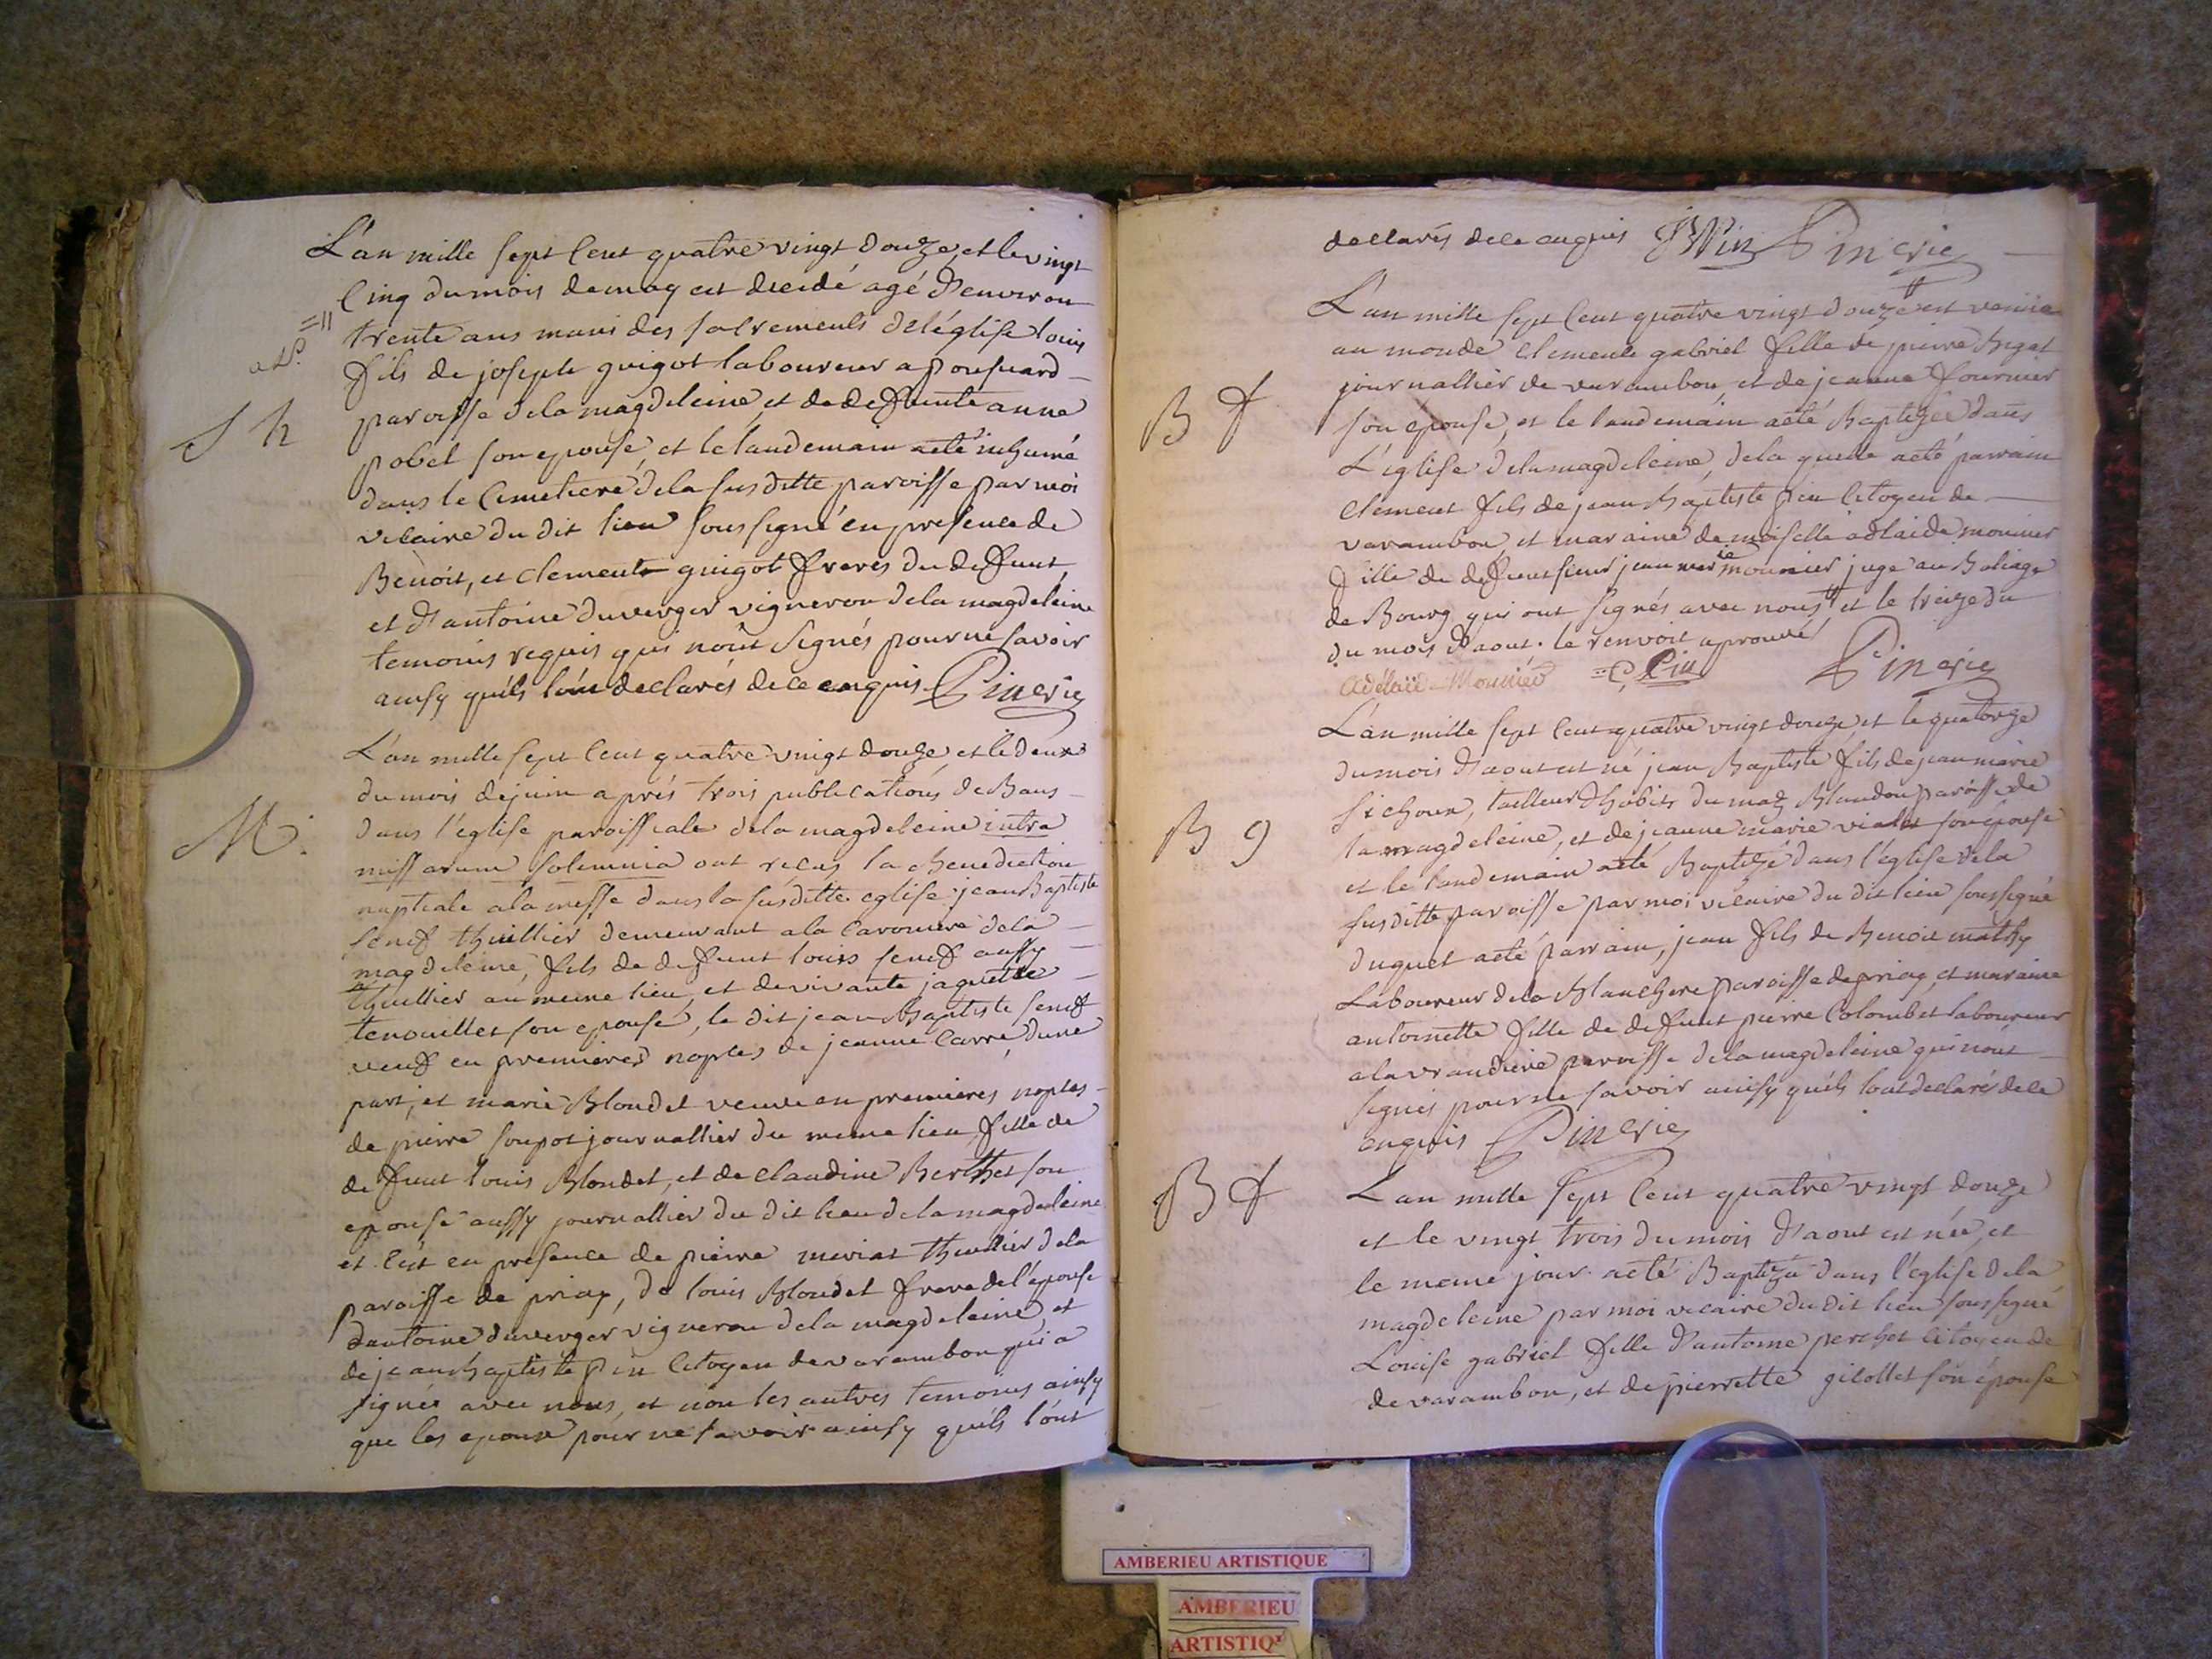 L'an mille sept cent quatre vingt douze, et le vingt
cinq du mois de may est decedé agé d'environ
trente ans muni des sacrements de l'église louis
fils de joseph guigot laboureur a
paroisse dela magdeleine et de defunte anne
pobel son epouse et le landemain aeté inhumé
dans le cimetiere dela susditte paroisse par moi
vicaire du dit lieu soussigné en presence de
Benoit, et clement guigot freres du defunt
et d'antoine duverger vigneron dela magdeleine
temoins requis qui n'ont signés pour ne savoir
ainsy quils l'ont declarés de ce enquis Pinerie
S h
L'an mille sept cent quatre vingt douze, et le deux
du mois de juin après trois publications de Bans
dans l'église paroissiale dela magdeleine intra
missarum solemnia ont reçus la Benediction
nuptiale a la messe dans la susditte eglise jean Baptiste
senef thuillier demeurant a la caronniere dela
magdeleine, fils de defunt louis senef aussy
thuillier au meme lieu, et de vivante jaquette
tenouillet son epouse, le dit jean Baptiste senef
veuf en premieres noples de jeanne Carre, dune
part, et marie Blondet veuve en premieres noples
de pierre soupot journallier du meme lieu fille de
defunt louis Blondet, et de claudine Berthet son
epouse aussy journallier du dit lieu dela magdeleine
et c'est en presence de pierre muriat thuillier dela
paroisse de priay, de louis Blondet frere de l'epouse
dantoine duverger vigneron dela magdeleine et
de jean baptiste pin citoyen de varambon qui a
signée avec nous, et non les autres temoins ainsy
que les epoux pour ne savoir ainsy quils l'ont
M.
declarés dece enquis JBPin Pinerie
L'an mille sept cent quatre vingt douze est venüe
au monde clemente gabriel fille de pierre Bigat
journallier de varambon, et de jeanne fournier
son epouse, et le landemain aeté Baptizée dans
L'eglise dela magdeleine, dela quelle aeté parrain
clement fils de jean baptiste pin citoyen de
varambon, et maraine demoiselle adlaide monnier
fille de defunt sieur jean marie monnier juge au Baliage
de Bourg qui ont signés avec nous et le treize du
du mois d'aout. le renvoit aprouvé
Adélaïde Monnier C Pin Pinerie
B f
L'an mille sept cent quatre vingt douze, et le quatorze
du mois d'aout est né jean Baptiste fils de jean marie
sichoux, tailleur dhabits du maz Blandon paroisse de
la magdeleine, et de jeanne marie vialet son épouse
et le landemain aeté Baptizé dans l'église dela
susditte paroisse par moi vicaire du dit lieu soussigné
duquel aeté parrain, jean fils de Benoit mathy
Laboureur dela Blanchere paroisse de priay, et maraine
antoinette fille de defunt pierre Colombet laboureur
a la vraudiere paroisse dela magdeleine qui n'ont
signés pour ne savoir ainsy quils l'ont declarés dece
enquis Pinerie
B g
L'an mille sept cent quatre vingt douze
et le vingt trois du mois d'aout est née, et
le meme jour aeté Baptizée dans l'église dela
magdeleine par moi vicaire du dit lieu soussigné
Louise gabriel fille d'antoine perchet citoyen de
de varambon, et de pierrette gilottet son épouse
B f
AMBERIEU ARTISTIQUE
AMBERIEU
ARTISTIQ